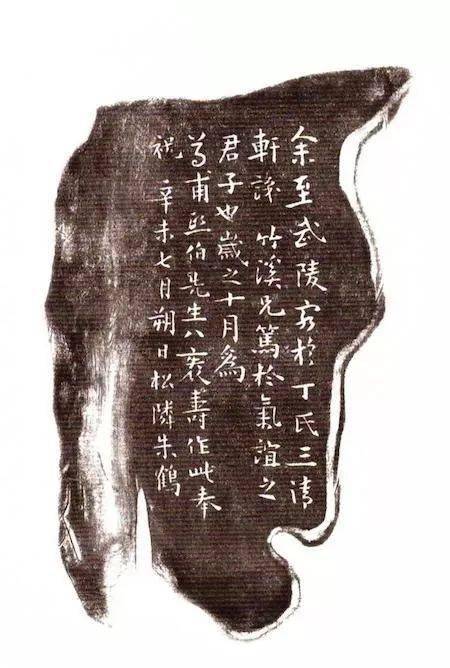 余至武陵客於丁氏三清
軒識 竹溪兄篤於氣誼之
君子也歲之十月為
尊甫熙伯先生八袠壽作此奉
祝 辛未七月朔日松隣朱鶴